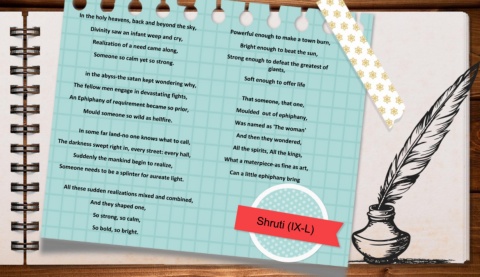 In the holy heavens, back and beyond the sky,
Divinity saw an infant weep and cry,
Realization of a need came along,
Someone so calm yet so strong.
in the abyss-the satan kept wondering why,
The fellow men engage in devastating fights,
An Ephiphany of requirement became so prior,
Mould someone so wild as hellfire.
In some far land-no one knows what to call,
The darkness swept right in, every street: every hall,
Suddenly the mankind begin to realize,
Someone needs to be a splinter for aureate light.
All these sudden realizations mixed and combined,
And they shaped one,
So strong, so calm,
So bold, so bright.
Powerful enough to make a town burn,
Bright enough to beat the sun,
Strong enough to defeat the greatest of
giants,
Soft enough to offer life
That someone, that one,
Moulded out of ephiphany,
Was named as 'The woman'
And then they wondered,
All the spirits, All the kings,
What a materpiece-as fine as art,
Can a little ephiphany bring
Shruti (IX-L)